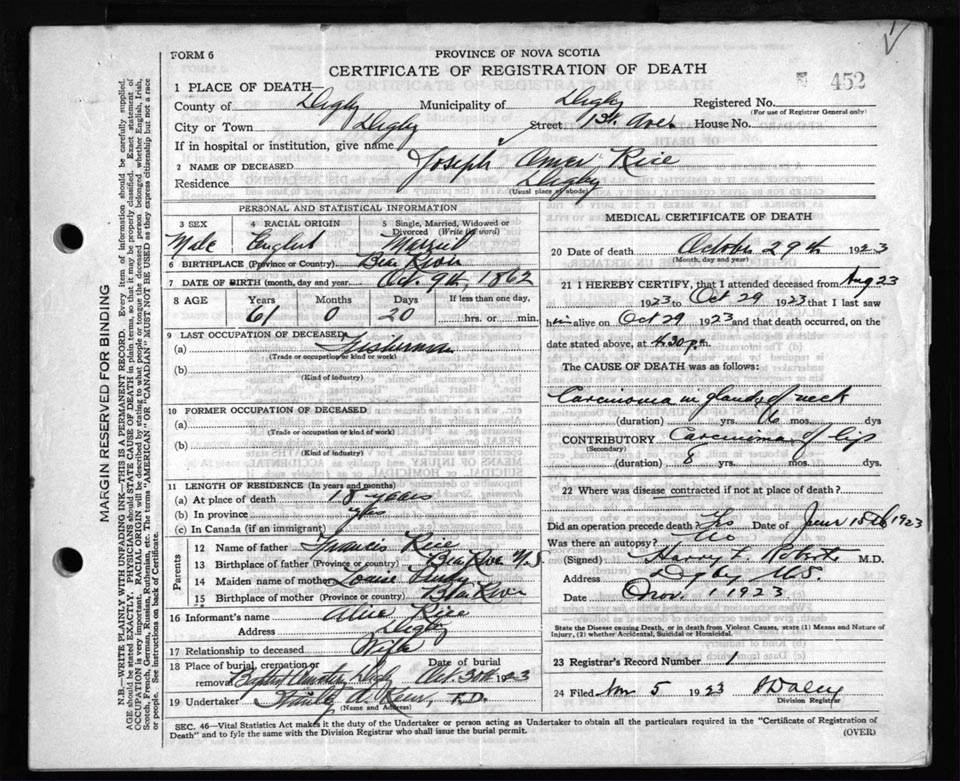 FORM 6
PROVINCE OF NOVA SCOTIA
CERTIFICATE OF REGISTRATION OF DEATH
452
1 PLACE OF DEATH—
County of Digby Municipality of Digby Registered No.
(For use of Registrar General only)
City or Town Digby Street 1st Ave. House No.
If in hospital or institution, give name
2 NAME OF DECEASED Joseph Omer Rice
Residence Digby
(Usual place of abode)
PERSONAL AND STATISTICAL INFORMATION
3 SEX Male
4 RACIAL ORIGIN English
5 Single, Married, Widowed or Divorced (Write the word) Married
6 BIRTHPLACE (Province or Country) Bear River
7 DATE OF BIRTH (month, day and year) Oct. 9th, 1862
8 AGE Years Months Days If less than one day,
61 0 20 hrs. or min.
9 LAST OCCUPATION OF DECEASED
(a) Fisherman
(Trade or occupation or kind of work)
(b)
(Kind of industry)
10 FORMER OCCUPATION OF DECEASED
(a)
(Trade or occupation or kind of work)
(b)
(Kind of industry)
11 LENGTH OF RESIDENCE (In years and months)
(a) At place of death 18 years
(b) In province
(c) In Canada (if an immigrant)
Parents
12 Name of father Francis Rice
13 Birthplace of father (Province or country) Bear River N.S.
14 Maiden name of mother Louise
15 Birthplace of mother (Province or country) Bear River
16 Informant's name Alice Rice
Address Digby
17 Relationship to deceased Wife
18 Place of burial, cremation or removal Baptist Cemetery Digby Date of burial Oct. 30th 1923
19 Undertaker F.D.
(Name and Address)
MEDICAL CERTIFICATE OF DEATH
20 Date of death October 29th 1923
(Month, day and year)
21 I HEREBY CERTIFY, that I attended deceased from Aug 23
1923 to Oct 29 1923 that I last saw
him alive on Oct 29 1923 and that death occurred, on
date stated above, at 4.30 p.m.
The CAUSE OF DEATH was as follows:
Carcinoma in glands of neck
(duration) yrs. 6 mos. dys
CONTRIBUTORY Carcinoma of lip
(Secondary)
(duration) 8 yrs. mos. dys.
22 Where was disease contracted if not at place of death?
Did an operation precede death? Yes Date of June 15th 1923
Was there an autopsy? No
(Signed) Harry L. Roberts M.D.
Address Digby N.S.
Nov. 1 1923
State the Disease causing Death, or in death from Violent Causes, state (1) Means and Nature of
Injury, (2) whether Accidental, Suicidal or Homicidal.
23 Registrar's Record Number 1
24 Filed Nov 5 1923
Division Registrar
SEC. 46—Vital Statistics Act makes it the duty of the Undertaker or person acting as Undertaker to obtain all the particulars required in the "Certificate of Registration of
Death" and to fyle the same with the Division Registrar who shall issue the burial permit.
(OVER)
MARGIN RESERVED FOR BINDING
N.B.—WRITE PLAINLY WITH UNFADING INK—THIS IS A PERMANENT RECORD. Every item of information should be carefully supplied.
AGE should be stated EXACTLY. PHYSICIANS should STATE CAUSE OF DEATH in plain terms, so that it may be properly classified. Exact statement of
OCCUPATION is very important. RACIAL ORIGIN will be described by stating to what people or tongue the deceased person belonged whether English, Irish,
Scotch, French, German, Russian, Ruthenian, etc. The terms "AMERICAN" or "CANADIAN" MUST NOT BE USED as they express citizenship but not a race
or people. See instructions on back of Certificate.